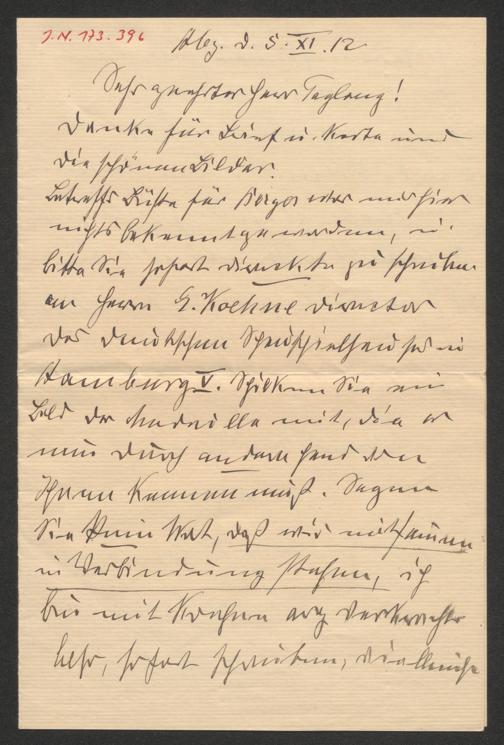 J.N. 173.396
Abg. d. 5. XI. 12
Sehr geehrter Herr Teglang!
Danke für Brief u. Karte und
die schönen Bilder.
Betreffs Büste für Berger war mir hier
nichts bekannt geworden, u.
bitte Sie sofort direkte zu schreiben
an Herrn G. Koehne Director
des deutschen Schauspielhauses in
Hamburg V. Schicken Sie ein
Bild der Medaille mit, die er
nun durch andere Hand von
Ihnen kennen muß. Sagen
Sie kein Wort, daß wir mitsammen
in Verbindung stehen, ich
bin mit Koehne arg verkracht
also, sofort schreiben, vielleicht